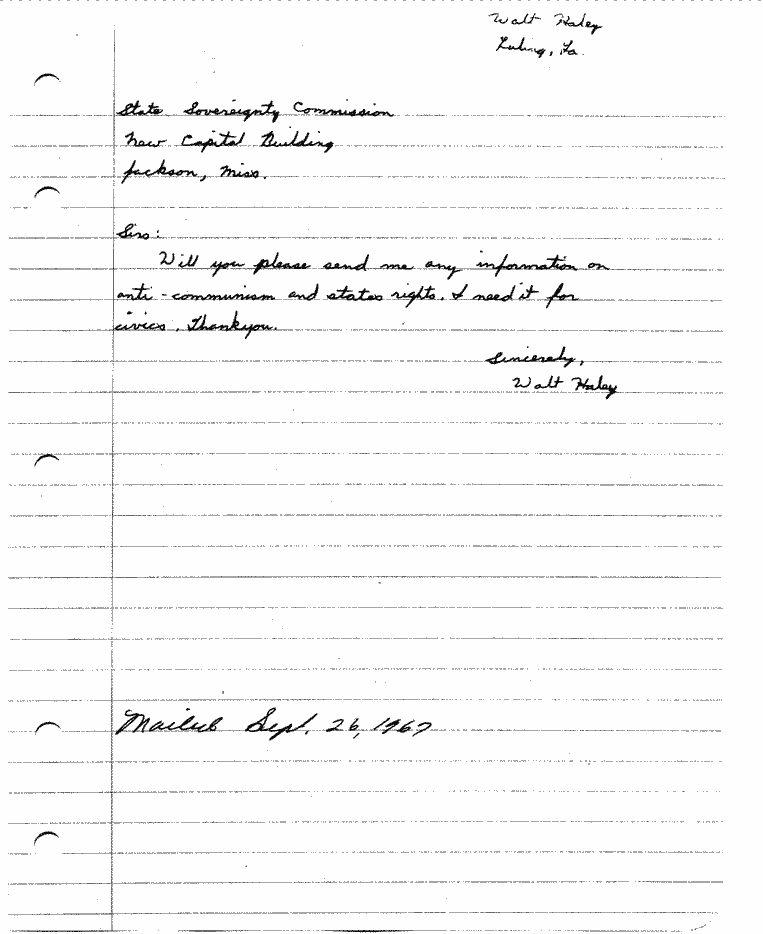 Walt Haley
Luling, La.
State Sovereignty Commission
New Capital Building
Jackson, Miss.
Sirs:
Will you please send me any information on
anti-communism and states rights. I need it for
civics. Thankyou.
Sincerely,
Walt Haley
Mailed Sept. 26, 1967